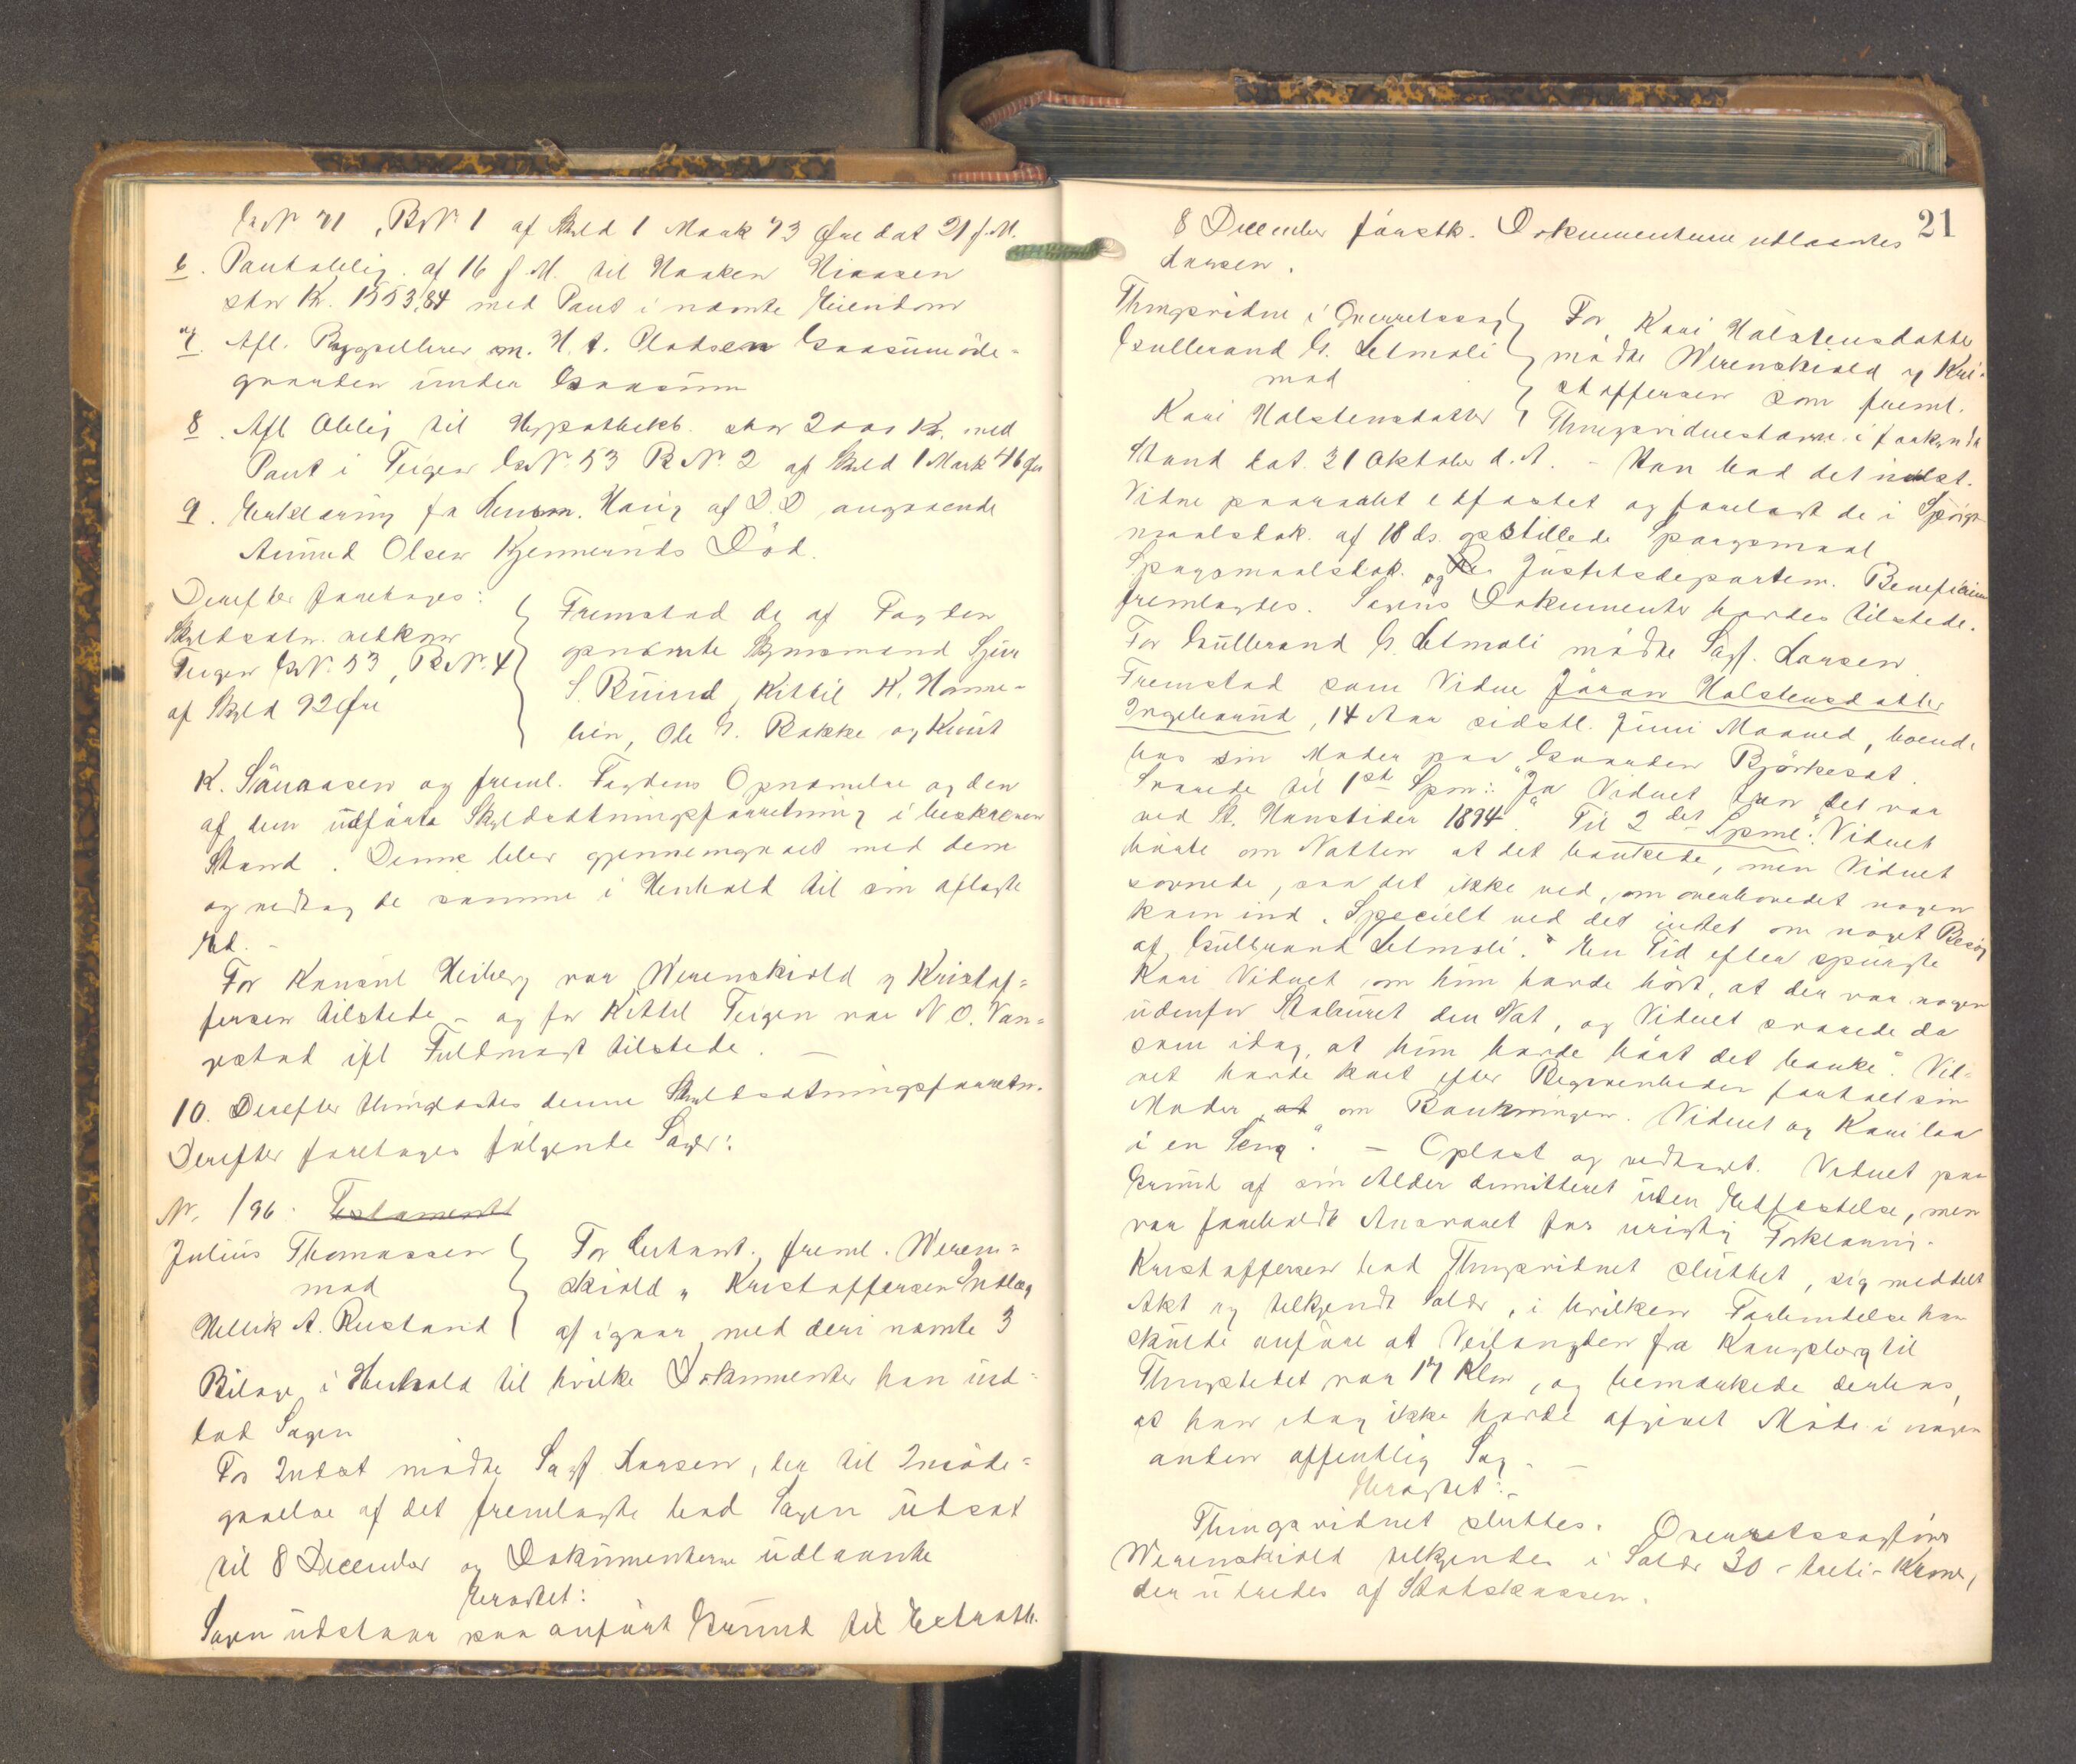 GNr. 71, BNr. 1 af Skyld 1 Mark 73 Øre dat 21 f.M.
6. Pantoblig. af 16 f.M. til Haaken Hiaasen
stor Kr. 1553,84 med Pant i nævnte Eiendom
7. Afl. Bygselbrev m. H. A. Pladsen Gaasumøde-
gaarden under Gaasum
8. Afl Oblig til Hypothekb. stor 2000 Kr. med
Pant i Teigen GNr. 53 BNr. 2 af Skyld 1 Mark 46 Øre
9. Erklæring fra Lensm. Havig af D.D angaaende
Amund Olsen Kjenneruds Död.
Derefter foretages:
Skyldsætn. vedkom
Teigen GNr. 53, BNr. 4
af Skyld 92 Øre
Fremstod de af Fogden
opnævnte Skjønsmænd Sjur
S. Buind, Kittil K. Homme-
lien, Ole G. Bakke og Knut
K. Sönaasen og freml. Fogdens Opnævnelse og den
af dem udförte Skyldsætningsforretning i beskreven
Stand. Denne blev gjennemgaaet med dem
og vedtog de samme i Henhold til sin aflagte
Ed. –
For Konsul Heiberg var Werenskiold & Kristof=
fersen tilstede – og for Kittil Teigen var N O. Van=
gestad ifl Fuldmagt tilstede. —
10. Derefter thinglæstes denne Skyldsætningsforretn.
Derefter foretages fölgende Sager:
Nr. 1/96. Testamentet
Julius Thomassen
mod
Hellik A. Rustand
For Citant. freml. Weren=
skiold " Kristoffersen Indlæg
af igaar med deri nævnte 3
Bilage i Henhold til hvilke Dokumenter han ind=
lod Sagen
For Indst mödte Sagf. Larsen, der til Imöde=
gaaelse af det fremlagte bad Sagen udsat
til 8 December og Dokumenterne udlaante
Eragtet:
Sagen udstaar paa anfört Grund til Extrath.
21
8 December förstk. Dokumenterne udlaantes
Larsen.
Thingsvidne i Overretssag
Gulbrand G. Letmoli
mod
Kari Halstensdatter
For Kari Halstensdatter
mödte Werenskiold og Kri-
stoffersen som freml.
Thingsvidnestævn. i forkyndt
Stand dat. 31 Oktober d. A. – Han bad det indst.
Vidne paaraabt edfæstet og forelagt de i Spörgs-
maalsdok. af 18 ds. opstillede Spørgsmaal
Spørgsmaalsdok. og Justitsdepartem. Beneficium
fremlagdes. Sagens Dokumenter havdes tilstede.
For Gulbrand G. Letmoli mödte Sagf. Larsen
Fremstod som Vidne Jöran Halstensdatter
Ingebraaud, 14 Aar sidstl. Juni Maaned, boende
hos sin Moder paa Gaarden Björkeset.
Svarede til 1ste Spm: "Ja Vidnet tror det var
ved St. Hanstider 1894". Til 2det Spml: "Vidnet
hörte om Natten at det bankede, men Vidnet
sovnede, saa det ikke ved, om overhovedet nogen
kom ind. Specielt ved det intet om noget Besög
af Gulbrand Letmoli." En Tid efter spurgte
Kari Vidnet om hun havde hört, at der var nogen
udenfor Stabburet den Nat, og Vidnet svarede da
som idag, at hun havde hört det banke". Vid=
net havde kort efter Begivenheden fortalt sin
Moder at om Bankningen. Vidnet og Kari laa
i en Seng". – Oplæst og vedtaget. Vidnet paa
Grund af sin Alder dimitteret uden Edfæstelse, men
var foreholdt Ansvaret for urigtig Forklaring.
Kristoffersen bad Thingsvidnet sluttet, sig meddelt
Akt og tilkjendt Salær, i hvilken Forbindelse han
skulde anføre at Veilængden fra Kongsberg til
Thingstedet var 17 Klm, og bemærkede derhos,
at han idag ikke havde afgivet Möde i nogen
anden offentlig Sag. –
Eragtet: –
Thingsvidnet sluttes. Overretssagförer
Werenskiold tilkjendes i Salær 30 – treti – Kroner,
der udredes af Statskassen.